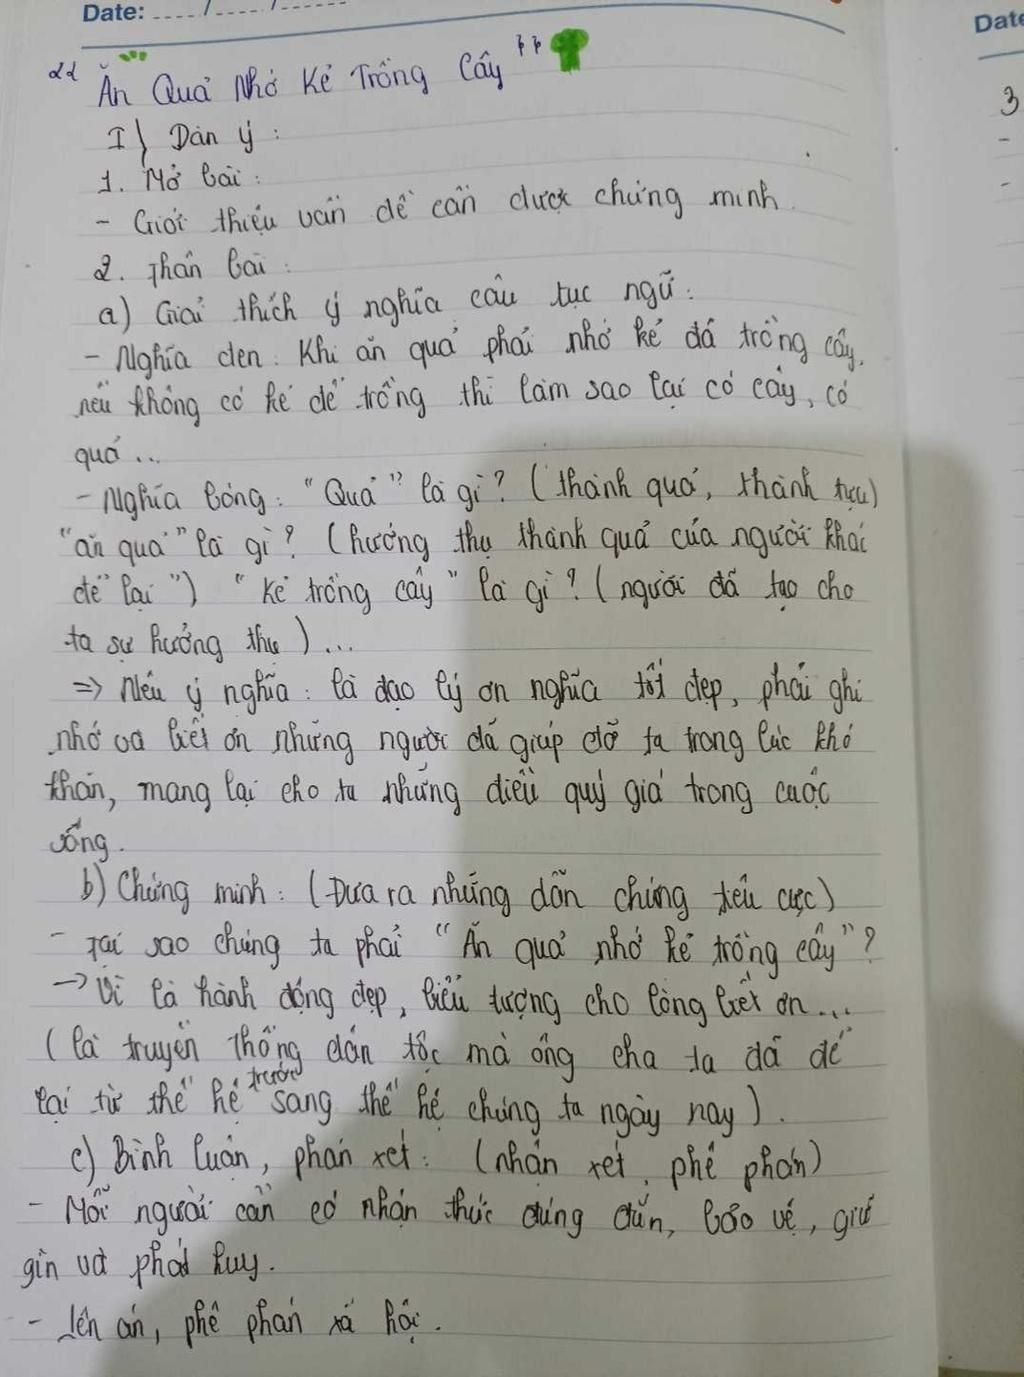 Date: ..../..../......
Date
"Ăn Quả Nhớ Kẻ Trồng Cây"
3
I) Dàn ý :
1. Mở bài :
- Giới thiệu vấn đề cần được chứng minh.
2. Thân bài :
a) Giải thích ý nghĩa câu tục ngữ :
- Nghĩa đen : Khi ăn quả phải nhớ kẻ đã trồng cây,
nếu không có kẻ để trồng thì làm sao lại có cây, có
quả ...
- Nghĩa bóng : "Quả" là gì? (thành quả, thành tựu)
"ăn quả" là gì? (hưởng thụ thành quả của người khác
để lại") "kẻ trồng cây" là gì? (người đã tạo cho
ta sự hưởng thụ) ...
=> Nêu ý nghĩa : là đạo lý ơn nghĩa tốt đẹp, phải ghi
nhớ và biết ơn những người đã giúp đỡ ta trong lúc khó
khăn, mang lại cho ta những điều quý giá trong cuộc
sống.
b) Chứng minh : (Đưa ra những dẫn chứng tiêu cực)
- Tại sao chúng ta phải "Ăn quả nhớ kẻ trồng cây"?
-> Vì là hành động đẹp, biểu tượng cho lòng biết ơn ...
(là truyền thống dân tộc mà ông cha ta đã để
lại từ thế hệ trước sang thế hệ chúng ta ngày nay).
c) Bình luận, phán xét : (nhận xét, phê phán)
- Mỗi người cần có nhận thức đúng đắn, bảo vệ, giữ
gìn và phát huy.
- Lên án, phê phán xã hội.